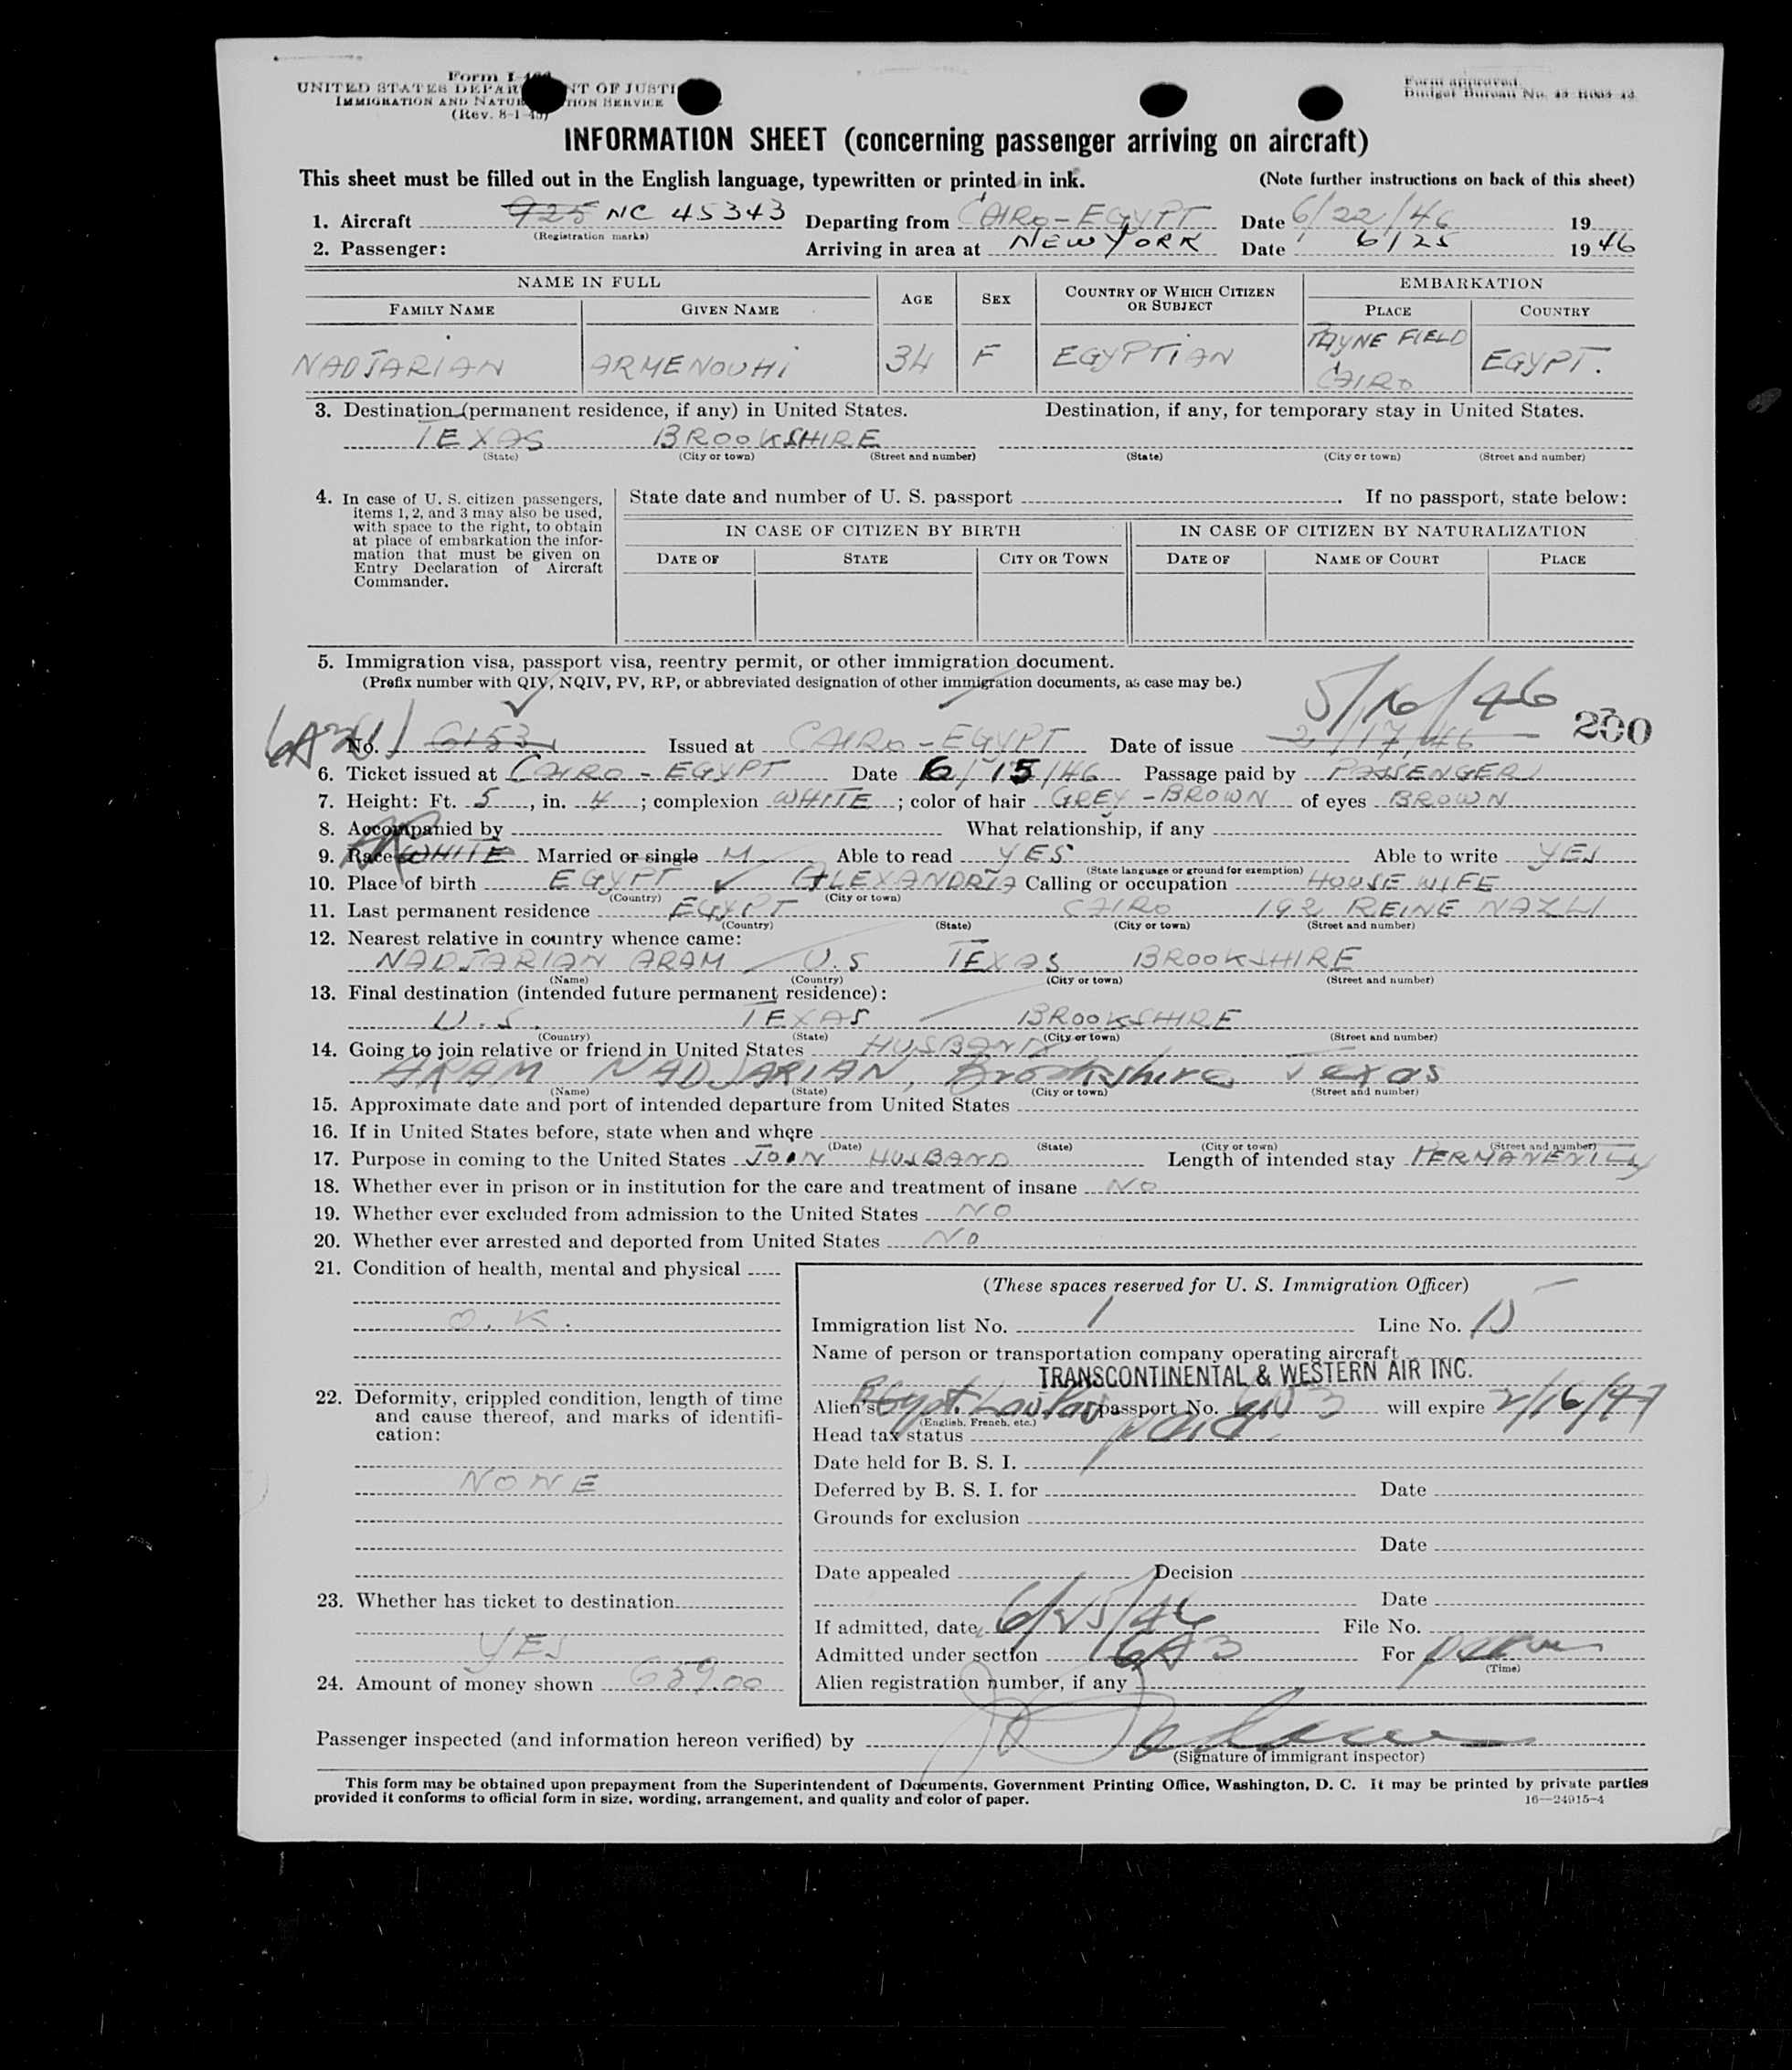 Form I-
UNITED STATES DEPAR NT OF JUSTI
IMMIGRATION AND NATUR TION SERVICE
(Rev. 8-1-45)
Form approved.
Budget Bureau No.
INFORMATION SHEET (concerning passenger arriving on aircraft)
This sheet must be filled out in the English language, typewritten or printed in ink. (Note further instructions on back of this sheet)
1. Aircraft 925 NC 45343 Departing from CAIRO - EGYPT Date 6/22/46 19
(Registration marks)
2. Passenger: Arriving in area at NEW YORK Date 6/25 1946
NAME IN FULL AGE SEX COUNTRY OF WHICH CITIZEN OR SUBJECT EMBARKATION
FAMILY NAME GIVEN NAME PLACE COUNTRY
NADJARIAN ARMENOUHI 34 F EGYPTIAN PAYNE FIELD CAIRO EGYPT.
3. Destination (permanent residence, if any) in United States. Destination, if any, for temporary stay in United States.
TEXAS BROOKSHIRE
(State) (City or town) (Street and number) (State) (City or town) (Street and number)
4. In case of U. S. citizen passengers,
items 1, 2, and 3 may also be used,
with space to the right, to obtain
at place of embarkation the infor-
mation that must be given on
Entry Declaration of Aircraft
Commander.
State date and number of U. S. passport . If no passport, state below:
IN CASE OF CITIZEN BY BIRTH IN CASE OF CITIZEN BY NATURALIZATION
DATE OF STATE CITY OR TOWN DATE OF NAME OF COURT PLACE
5. Immigration visa, passport visa, reentry permit, or other immigration document.
(Prefix number with QIV, NQIV, PV, RP, or abbreviated designation of other immigration documents, as case may be.)
5/16/46
200
No. 6153 Issued at CAIRO - EGYPT Date of issue 2/17/46
6. Ticket issued at CAIRO - EGYPT Date 6/15/46 Passage paid by PASSENGER
7. Height: Ft. 5, in. 4; complexion WHITE; color of hair GREY - BROWN of eyes BROWN
8. Accompanied by What relationship, if any
9. Race WHITE Married or single M Able to read YES Able to write YES
(State language or ground for exemption)
10. Place of birth EGYPT ALEXANDRIA Calling or occupation HOUSE WIFE
(Country) (City or town)
11. Last permanent residence EGYPT CAIRO 192 REINE NAZLI
(Country) (State) (City or town) (Street and number)
12. Nearest relative in country whence came:
NADJARIAN ARAM U.S TEXAS BROOKSHIRE
(Name) (Country) (City or town) (Street and number)
13. Final destination (intended future permanent residence):
U.S. TEXAS BROOKSHIRE
(Country) (State) (City or town) (Street and number)
14. Going to join relative or friend in United States HUSBAND
ARAM NADJARIAN, Brookshire Texas
(Name) (State) (City or town) (Street and number)
15. Approximate date and port of intended departure from United States
16. If in United States before, state when and where
(Date) (State) (City or town) (Street and number)
17. Purpose in coming to the United States JOIN HUSBAND Length of intended stay PERMANENTLY
18. Whether ever in prison or in institution for the care and treatment of insane NO
19. Whether ever excluded from admission to the United States NO
20. Whether ever arrested and deported from United States NO
21. Condition of health, mental and physical
O.K.
22. Deformity, crippled condition, length of time
and cause thereof, and marks of identifi-
cation:
NONE
23. Whether has ticket to destination
YES
24. Amount of money shown 659.00
(These spaces reserved for U. S. Immigration Officer)
Immigration list No. 1 Line No. 15
Name of person or transportation company operating aircraft
TRANSCONTINENTAL & WESTERN AIR INC.
Alien's passport No. will expire 2/16/47
(English, French, etc.)
Head tax status paid
Date held for B. S. I.
Deferred by B. S. I. for Date
Grounds for exclusion
Date
Date appealed Decision
Date
If admitted, date 6/25/46 File No.
Admitted under section 6A3 For perm
(Time)
Alien registration number, if any
Passenger inspected (and information hereon verified) by
(Signature of immigrant inspector)
This form may be obtained upon prepayment from the Superintendent of Documents, Government Printing Office, Washington, D. C. It may be printed by private parties
provided it conforms to official form in size, wording, arrangement, and quality and color of paper. 16—24915-4